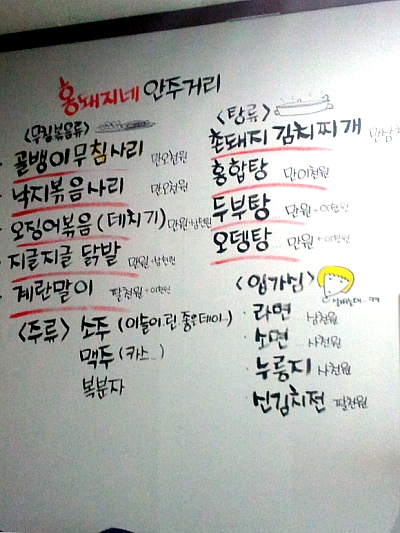 홍돼지네 안주거리
<무침볶음류>
골뱅이무침사리 만오천원
낙지볶음사리 만오천원
오징어볶음 (데치기) 만원+삼천원
지글지글 닭발 만원+삼천원
계란말이 팔천원+이천원
<탕류>
촌돼지 김치찌개
홍합탕 만이천원
두부탕 만원+이천원
오뎅탕 만원+이천원
<입가심>
라면 삼천원
소면 사천원
누룽지 사천원
신김치전 팔천원
<주류> 소주 (이슬이.린.좋은데이..)
맥주 (카스..)
복분자